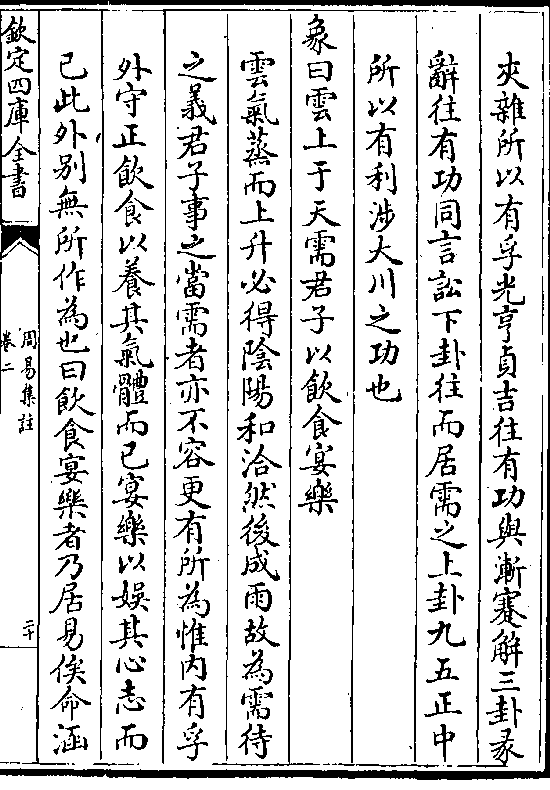 夾雜所以有孚光亨貞吉往有功與漸蹇解三卦彖
辭往有功同言訟下卦往而居需之上卦九五正中
所以有利涉大川之功也
象曰雲上于天需君子以飲食宴樂
雲氣蒸而上升必得陰陽和洽然後成雨故為需待
之義君子事之當需者亦不容更有所為惟內有孚
外守正飲食以養其氣體而已宴樂以娛其心志而
已此外別無所作為也曰飲食宴樂者乃居易俟命涵
欽定四庫全書
周易集註
卷二
二十